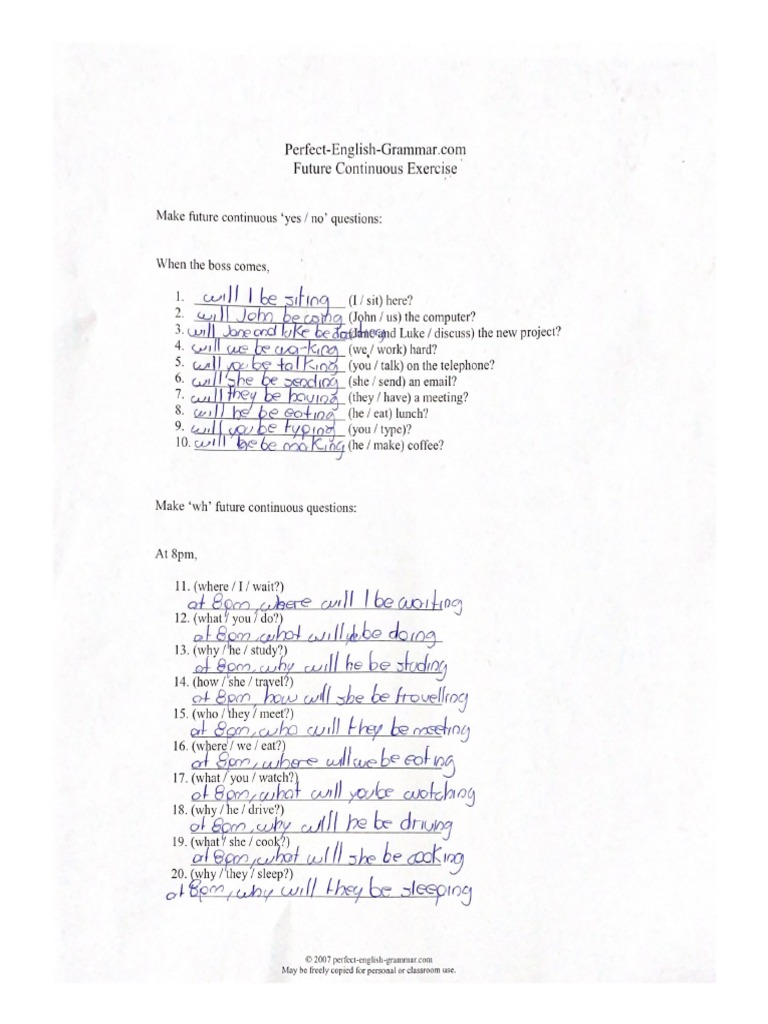 Perfect-English-Grammar.com
Future Continuous Exercise
Make future continuous 'yes / no' questions:
When the boss comes,
1. will I be siting (I / sit) here?
2. will John be (John / us) the computer?
3. will Jane and luke be (Jane and Luke / discuss) the new project?
4. will we be working (we / work) hard?
5. will you be talking (you / talk) on the telephone?
6. will she be sending (she / send) an email?
7. will they be having (they / have) a meeting?
8. will he be eating (he / eat) lunch?
9. will you be typing (you / type)?
10. will be making (he / make) coffee?
Make 'wh' future continuous questions:
At 8pm,
11. (where / I / wait?)
at 8pm, where will I be waiting
12. (what / you / do?)
at 8pm, what will be doing
13. (why / he / study?)
at 8pm, why will he be studing
14. (how / she / travel?)
at 8pm how will she be travelling
15. (who / they / meet?)
at 8pm, who will they be meeting
16. (where / we / eat?)
at 8pm, where will we be eating
17. (what / you / watch?)
at 8pm, what will you be watching
18. (why / he / drive?)
at 8pm, why will he be driving
19. (what / she / cook?)
at 8pm, what will she be cooking
20. (why / they / sleep?)
at 8pm, why will they be sleeping
© 2007 perfect-english-grammar.com
May be freely copied for personal or classroom use.